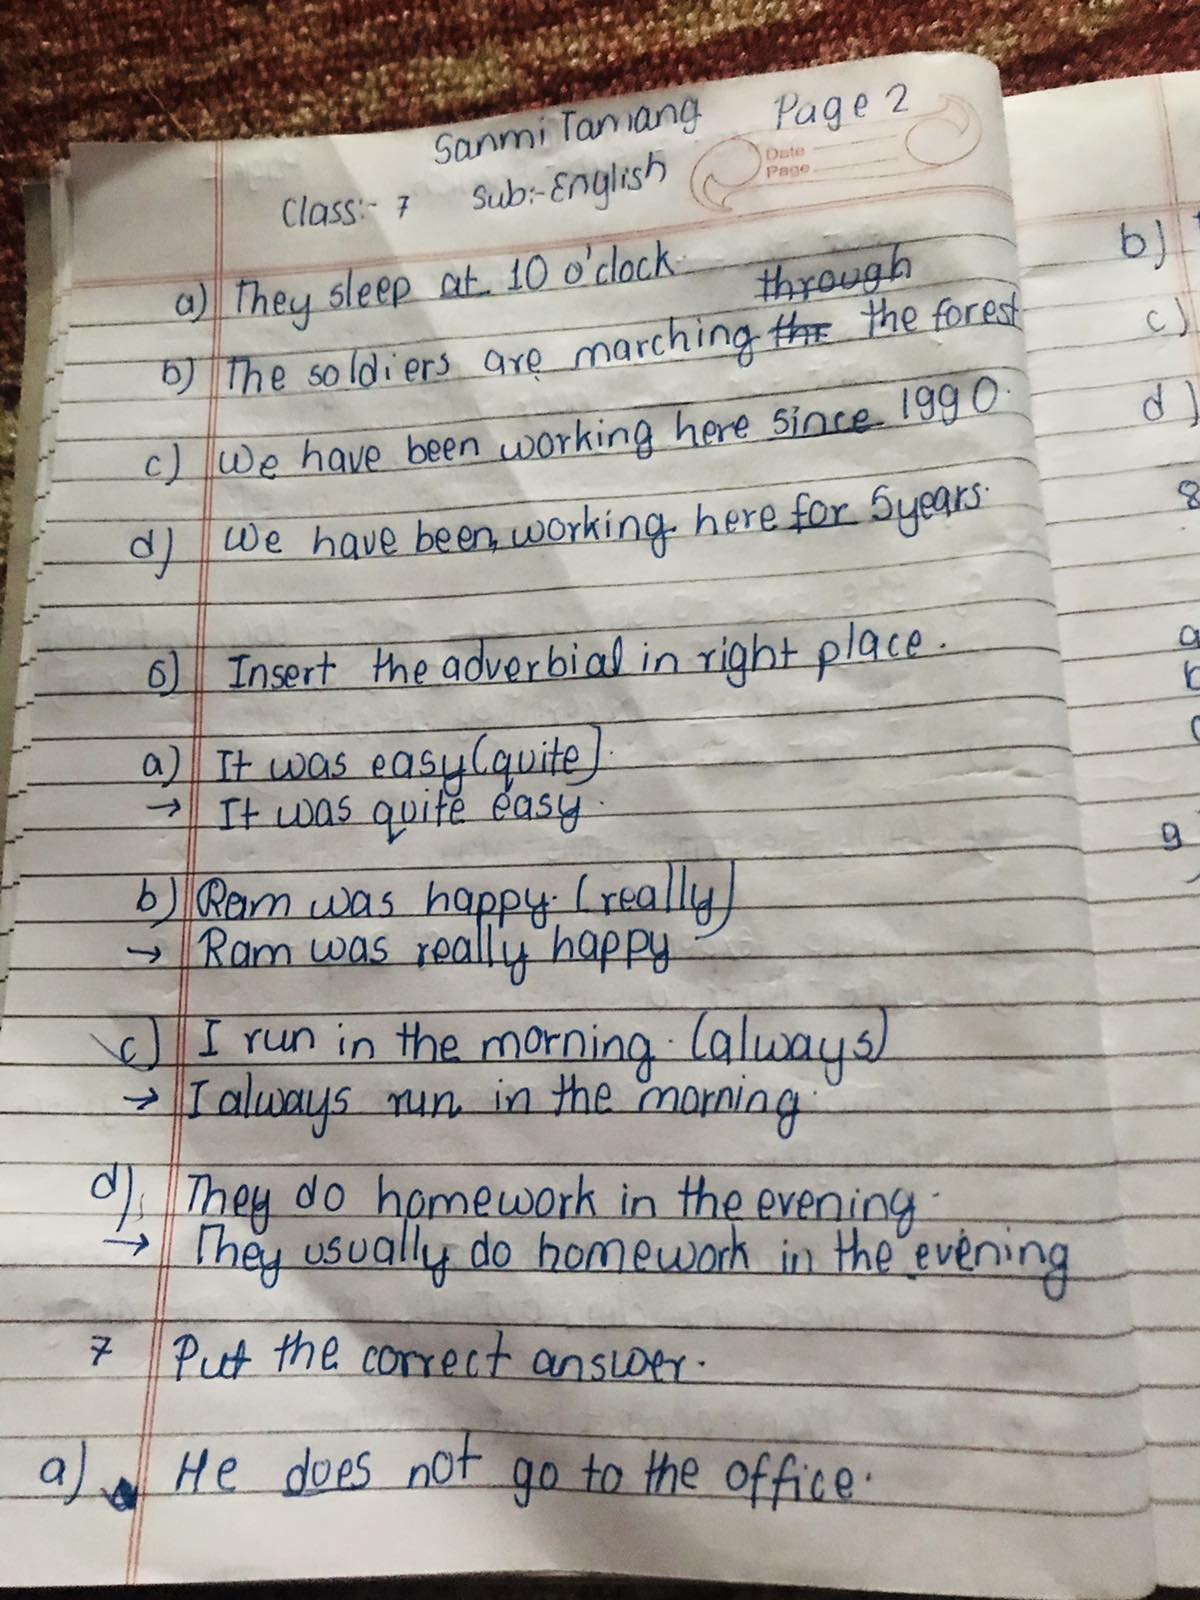 Sanmi Tamang Page 2
Date
Page
Class:- 7 Sub:- English
a) They sleep at 10 o'clock.
through
b) The soldiers are marching thr the forest
c) We have been working here since 1990.
d) We have been working here for 5 years.
6) Insert the adverbial in right place.
a) It was easy (quite).
→ It was quite easy.
b) Ram was happy. (really)
→ Ram was really happy
c) I run in the morning. (always)
→ I always run in the morning.
d) They do homework in the evening.
→ They usually do homework in the evening
7 Put the correct answer.
a) He does not go to the office.
b)
c)
d)
8
a
b
9